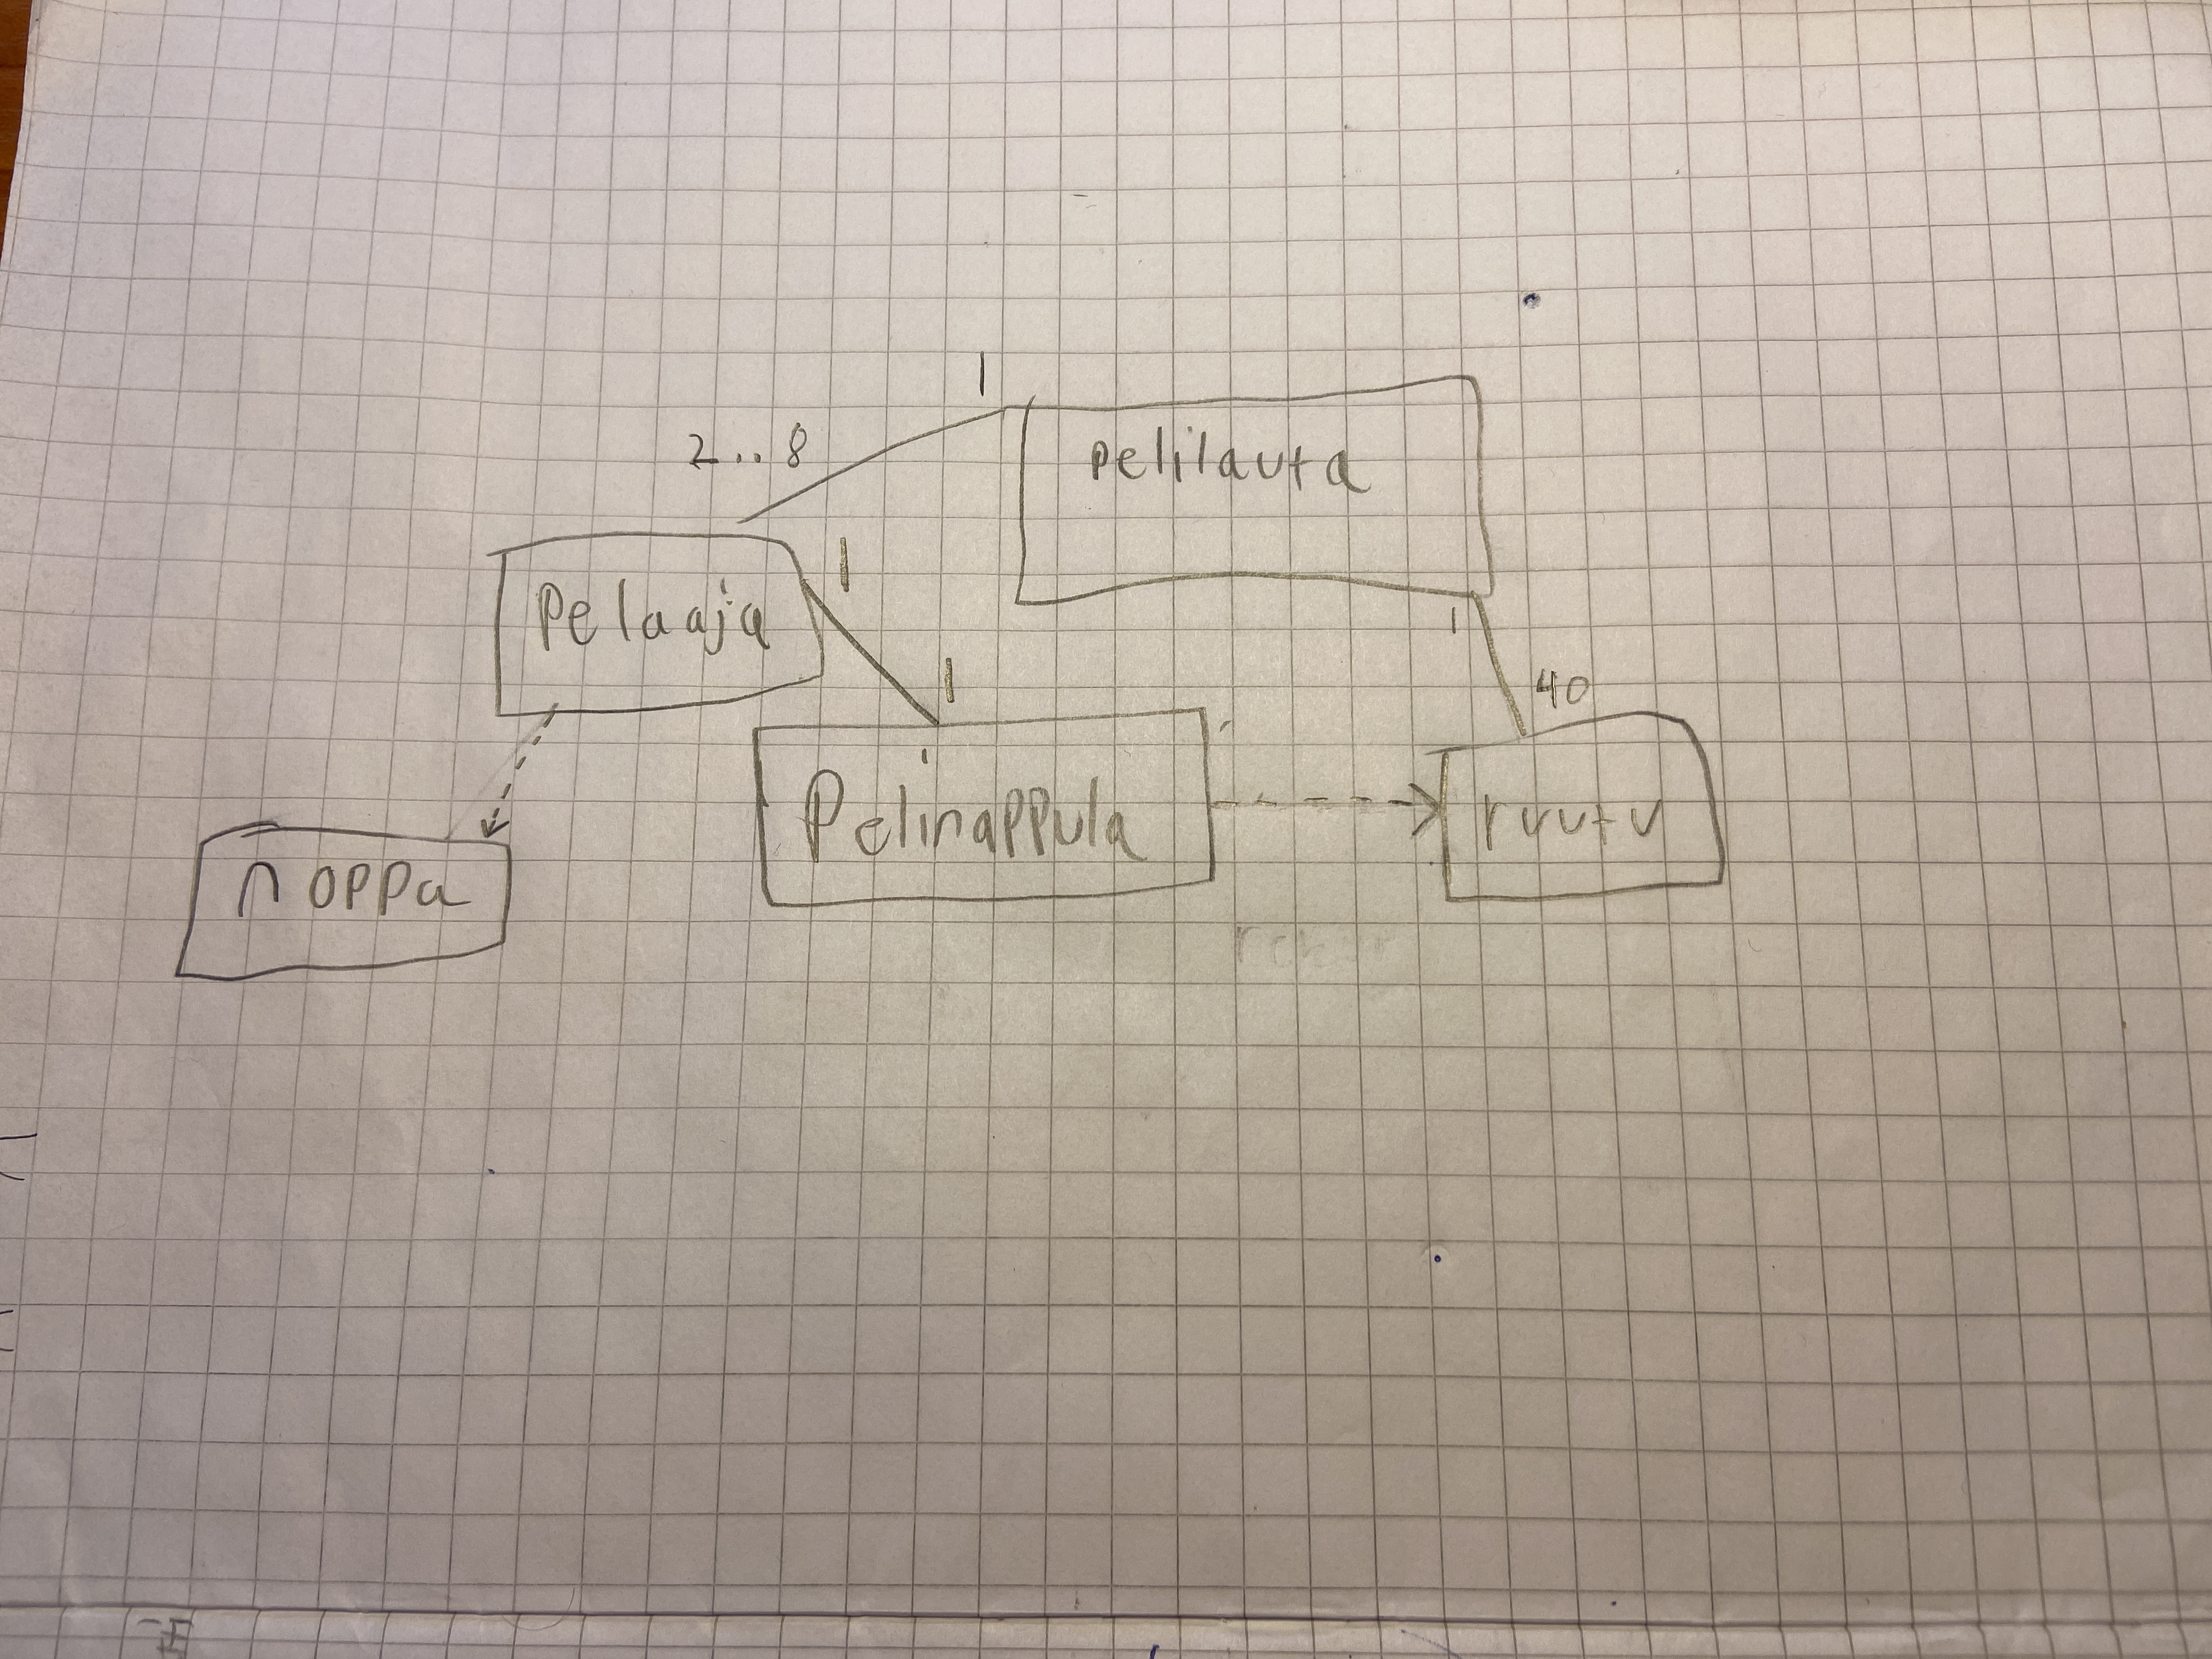 1
2..8
pelilauta
1
Pelaaja
1
1
40
Pelinappula
ruutu
noppa